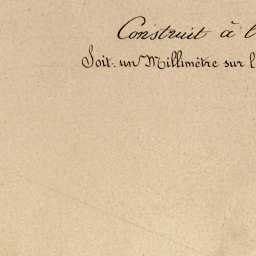 Construit à l
Soit: un Millimètre sur l